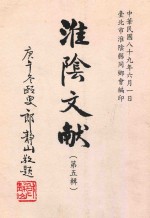 中華民國八十九年六月一日
臺北市淮陰縣同鄉會編印
淮陰文献
(第五輯)
庚午冬政更
郎静山敬題